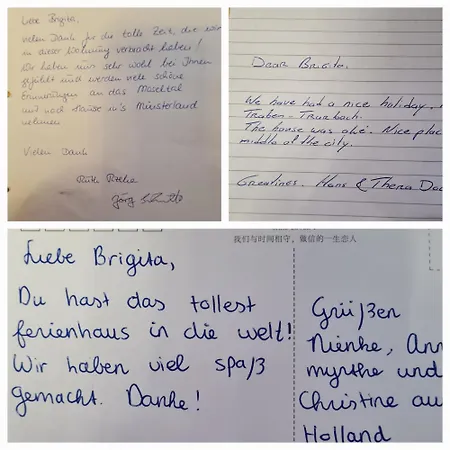 Liebe Brigita,
vielen Dank für die tolle Zeit, die wir
in dieser Wohnung verbracht haben!
Wir haben uns sehr wohl bei Ihnen
gefühlt und werden viele schöne
Erinnerungen an das Moseltal
mit nach Hause in's Münsterland
nehmen
Vielen Dank
Ruth
Jörg
Dear Brigita.
We have had a nice holiday,
Traben-Trarbach.
The house was oké. Nice plac
middle of the city.
Greatines. Hans & Thera
我们与时间相守，做信的一生恋人
Liebe Brigita,
Du hast das tollest
ferienhaus in die welt!
Wir haben viel spaß
gemacht. Danke!
Grüßen
Nienke, Ann
myrthe und
Christine au
Holland